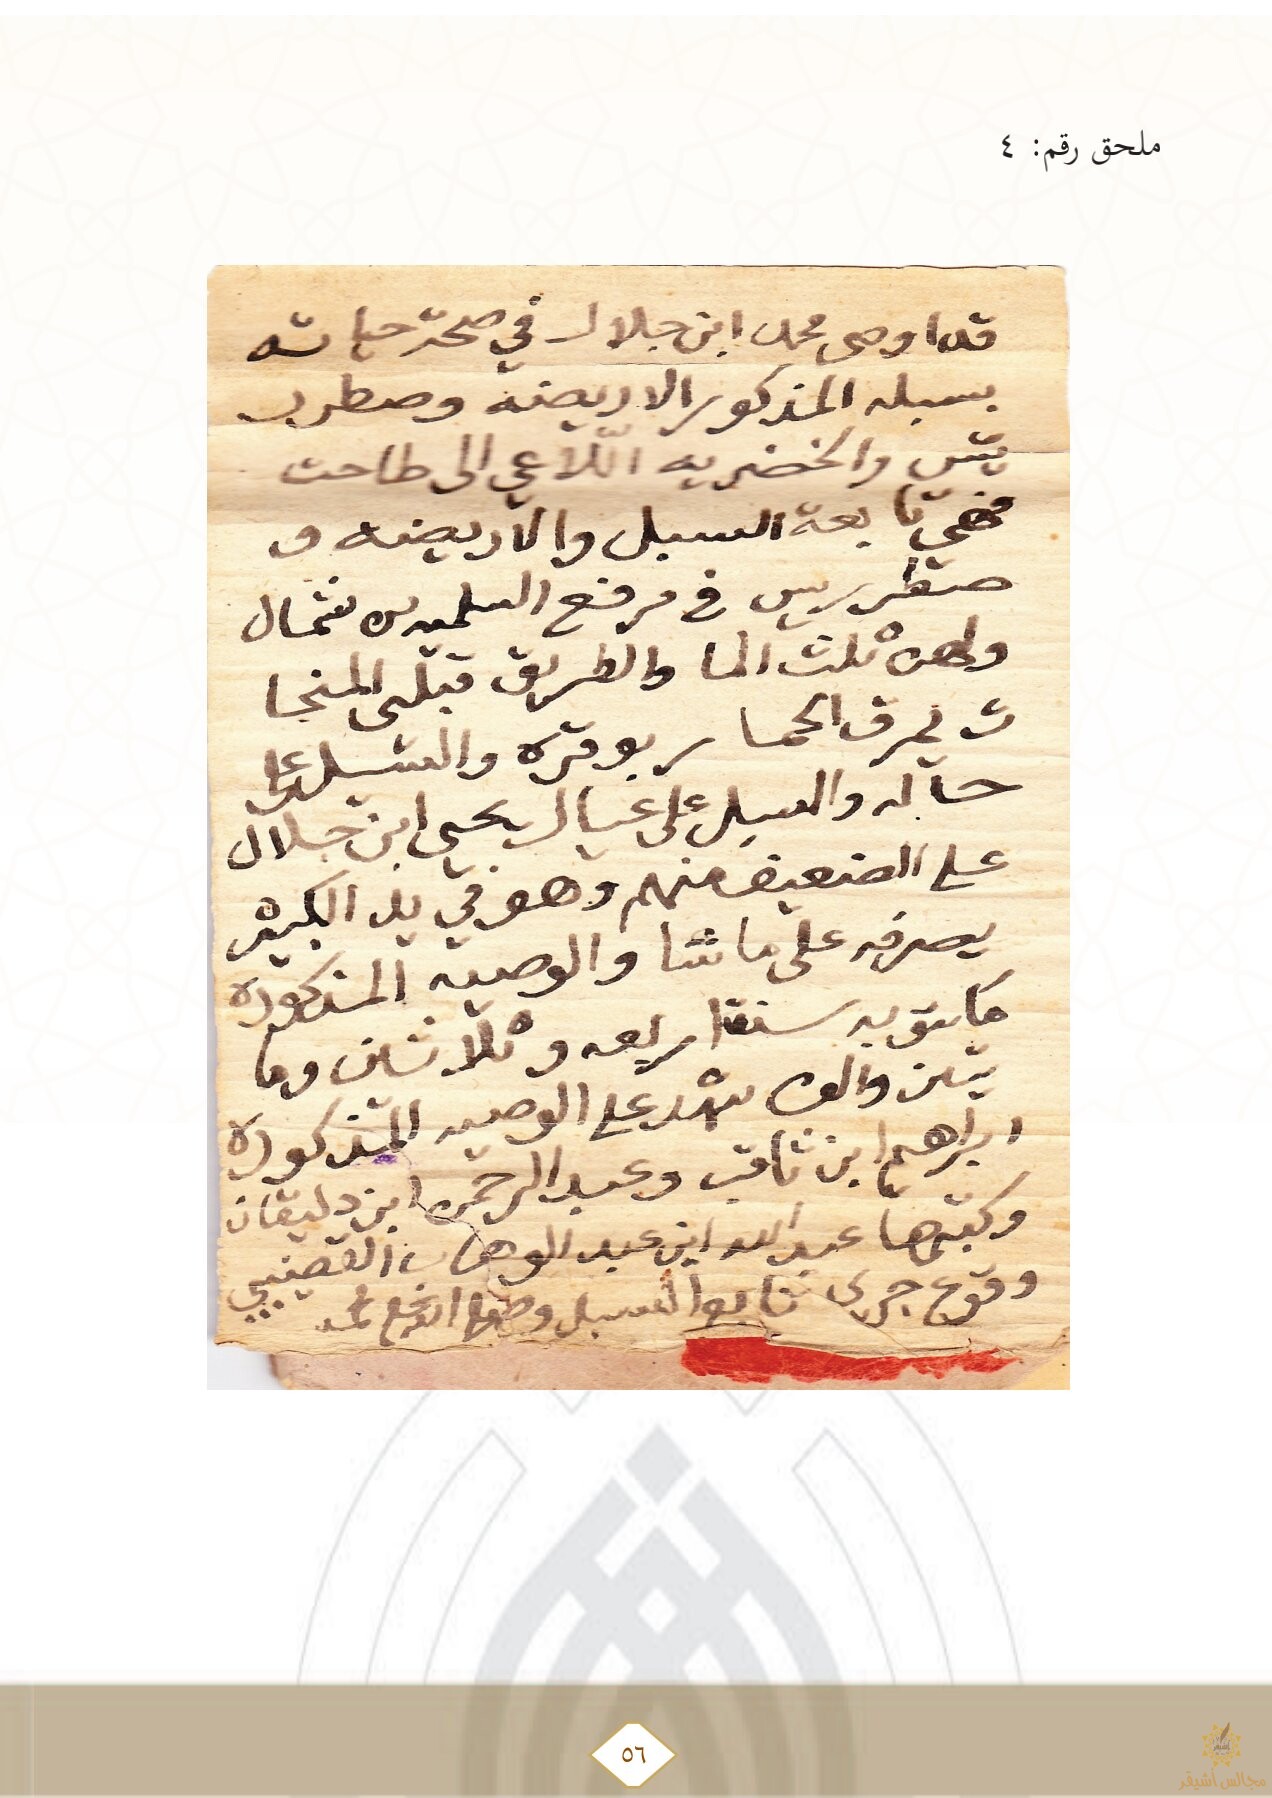 ملحق رقم: ٤
قد اوصى محمد ابن جلال في صحة حياته
بسبله المذكور الاريضه وصطر
والخضريه اللاعي الى طاحت
فهي تابعة السبل والاريضه و
في مرفع شمال
ولهن ثلث الما والطريق قبلي المنجا
ة الحمار بوقره والسيل على
حاله والسبل على عيال يحيى ابن جلال
على الضعيف منهم وهو في يد الكبير
يصرفه على ما شا والوصيه المذكوره
مكتوبه سنة اربعه وثلاثين وما
يتين والف شهد على الوصيه المذكوره
ابراهيم ابن ثاقب وعبد الرحمن ابن دليقان
وكتبها عبد الله ابن عبد الوهاب القضيبي
وقوع جرى تابع السبل محمد
٥٦
مجالس أشيقر